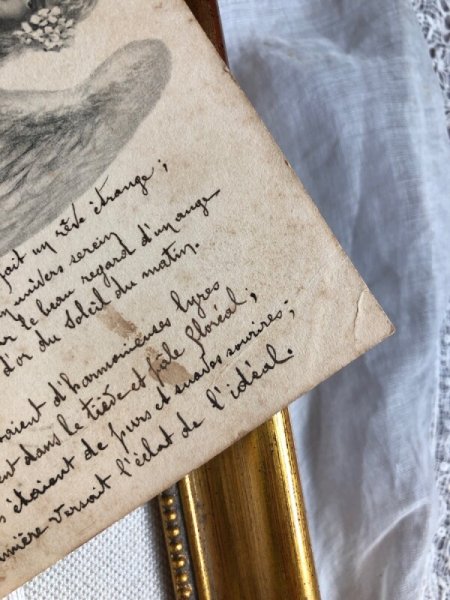 fait un rêve étrange;
univers serein
le beau regard d'un ange
d'or du Soleil du matin.
d'harmonieuses lyres
dans le tiède et pâle floréal;
étaient de purs et suaves sourires;
versait l'éclat de l'idéal.